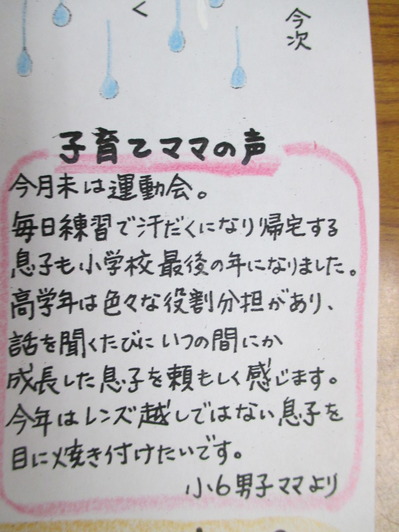 今次
く
子育てママの声
今月末は運動会。
毎日練習で汗だくになり帰宅する
息子も小学校最後の年になりました。
高学年は色々な役割分担があり、
話を聞くたびにいつの間にか
成長した息子を頼もしく感じます。
今年はレンズ越しではない息子を
目に焼き付けたいです。
小6男子ママより